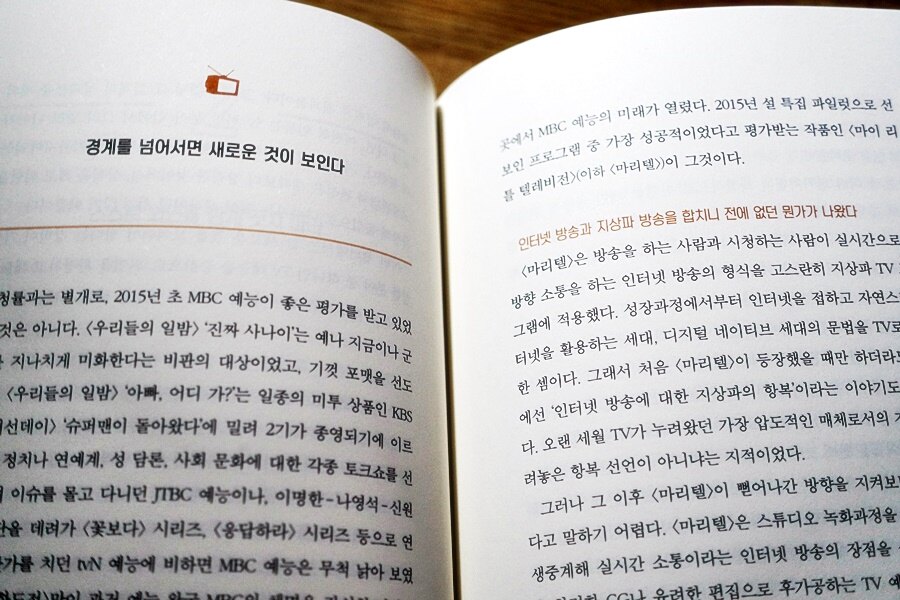 경계를 넘어서면 새로운 것이 보인다
청률과는 별개로, 2015년 초 MBC 예능이 좋은 평가를 받고 있었
것은 아니다. 〈우리들의 일밤〉 ‘진짜 사나이’는 예나 지금이나 군
지나치게 미화한다는 비판의 대상이었고, 기껏 포맷을 선도
〈우리들의 일밤〉 ‘아빠, 어디 가?’는 일종의 미투 상품인 KBS
선데이〉 ‘슈퍼맨이 돌아왔다’에 밀려 2기가 종영되기에 이르
정치나 연예계, 성 담론, 사회 문화에 대한 각종 토크쇼를 선
이슈를 몰고 다니던 JTBC 예능이나, 이명한-나영석-신원
단을 데려가 〈꽃보다〉 시리즈, 〈응답하라〉 시리즈 등으로 연
가를 치던 tvN 예능에 비하면 MBC 예능은 무척 낡아 보였
곳에서 MBC 예능의 미래가 열렸다. 2015년 설 특집 파일럿으로 선
보인 프로그램 중 가장 성공적이었다고 평가받는 작품인 〈마이 리
틀 텔레비전〉(이하 〈마리텔〉)이 그것이다.
인터넷 방송과 지상파 방송을 합치니 전에 없던 뭔가가 나왔다
〈마리텔〉은 방송을 하는 사람과 시청하는 사람이 실시간으로
방향 소통을 하는 인터넷 방송의 형식을 고스란히 지상파 TV
그램에 적용했다. 성장과정에서부터 인터넷을 접하고 자연스
터넷을 활용하는 세대, 디지털 네이티브 세대의 문법을 TV로
한 셈이다. 그래서 처음 〈마리텔〉이 등장했을 때만 하더라도
에선 ‘인터넷 방송에 대한 지상파의 항복’이라는 이야기도
다. 오랜 세월 TV가 누려왔던 가장 압도적인 매체로서의
려놓은 항복 선언이 아니냐는 지적이었다.
그러나 그 이후 〈마리텔〉이 뻗어나간 방향을 지켜보면
다고 말하기 어렵다. 〈마리텔〉은 스튜디오 녹화과정을
생중계해 실시간 소통이라는 인터넷 방송의 장점을
CG나 유려한 편집으로 후가공하는 TV 예